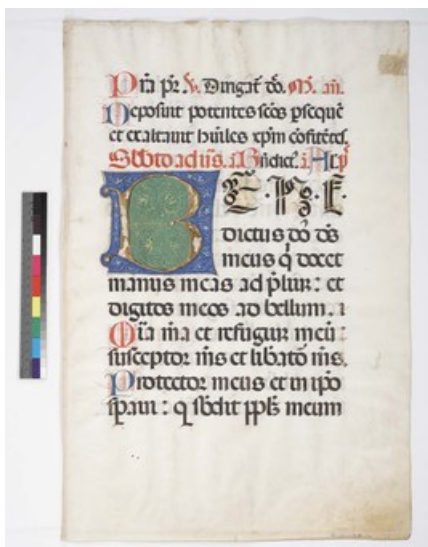 Pr̄a pr̄. ℣. Dirigat̄ dō. M. an̄.
Deposuit potentes sc̄os ꝑseque
et exaltauit hūiles xp̄m cōfitētes
Sbbto ad us̄. a. Bn̄dict.
BENE
dictus dō ds̄
meus q̄ docet
manus meas ad p̄liuƺ: et
digitos meos ad bellum. i
Mīa m̄a et refugiuƺ meū:
susceptor m̄s et libatō m̄s.
Protector meus et in ip̄o
sꝑaui: q̄ sbdit pplm̄ meum